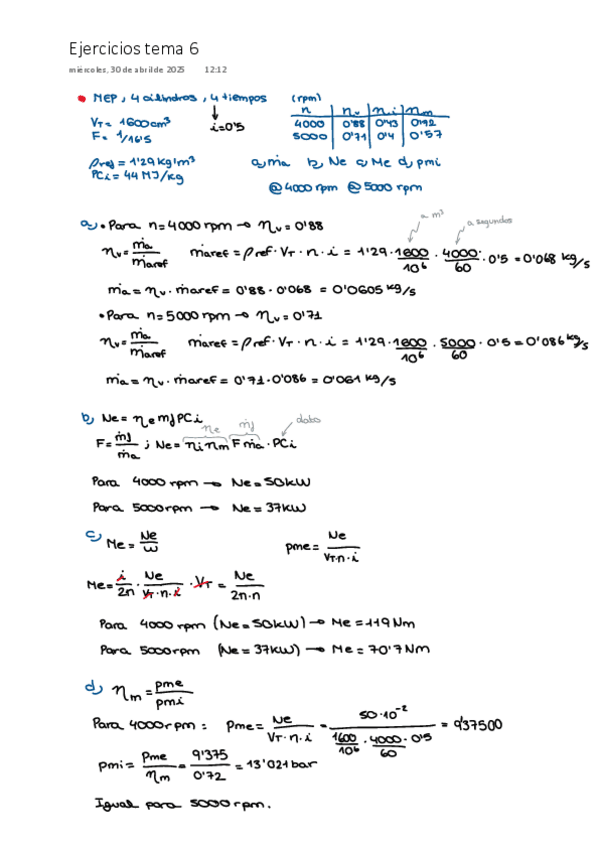 Ejercicios tema 6
miércoles, 30 de abril de 2025 12:12
• MEP, 4 cilindros, 4 tiempos
i=0'5
V_T = 1600cm³
F = 1/16'5
ρref = 1'29 kg/m³
PCi = 44 MJ/kg
(rpm)
n ηv ηi ηm
4000 0'88 0'43 0'72
5000 0'71 0'4 0'57
a) ṁa b) Ne c) Me d) pmi
@4000 rpm @5000 rpm
a m³
a segundos
a) • Para n=4000 rpm → ηv = 0'88
ηv = ṁa/ṁaref ṁaref = ρref · V_T · n · i = 1'29 · 1600/10⁶ · 4000/60 · 0'5 = 0'068 kg/s
ṁa = ηv · ṁaref = 0'88 · 0'068 = 0'0605 kg/s
• Para n = 5000 rpm → ηv = 0'71
ηv = ṁa/ṁaref ṁaref = ρref · V_T · n · i = 1'29 · 1600/10⁶ · 5000/60 · 0'5 = 0'086 kg/s
ṁa = ηv · ṁaref = 0'71 · 0'086 = 0'061 kg/s
b) Ne = ηe ṁf PCi
ηe ṁf dato
F = ṁf/ṁa ; Ne = ηi ηm F ṁa · PCi
Para 4000 rpm → Ne = 50kW
Para 5000 rpm → Ne = 37kW
c) Me = Ne/ω pme = Ne/(V_T·n·i)
Me = i/2π · Ne/(V_T·n·i) · V_T = Ne/(2π·n)
Para 4000 rpm (Ne = 50kW) → Me = 119 Nm
Para 5000 rpm (Ne = 37kW) → Me = 70'7 Nm
d) ηm = pme/pmi
Para 4000 rpm : pme = Ne/(V_T·n·i) = 50·10⁻²/(1600/10⁶ · 4000/60 · 0'5) = 9'37500
pmi = pme/ηm = 9'375/0'72 = 13'021 bar
Igual para 5000 rpm.